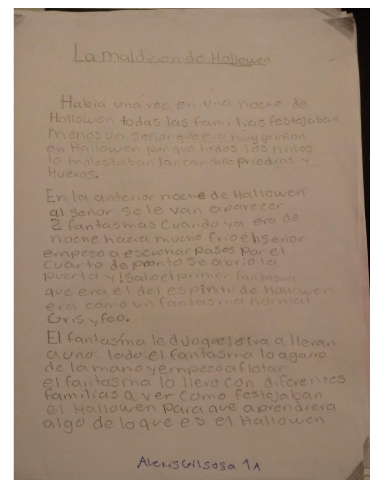 La maldicion de Hallowen
Habia una vec en una noche de
Hollowen todas las familias festejaban
menos un señor que era muy gruñon
en Hallowen por que todos los niños
lo molestaban lanzandole priedras y
Huevos.
En la anterior noche de Hallowen
al señor se le van aparecer
2 fantasmas Cuando ya era de
noche hacia mucho frio el señor
empezo a escuchar pasos por el
cuarto de pronto se abrio la
puerta y ¡Salo el primer fantasma
que era el del espiritu de Hallowen
era como un fantasma normal
Gris y feo.
El fantasma le dijo que lo iva a llevar
a uno: lado el fantasma lo agarro
de la mano y empezo a flotar
el fantasma lo llevo con diferentes
familias a ver como festejaban
el Hallowen para que aprendiera
algo de lo que es el Hallowen
Alexis Gil Sosa 1A